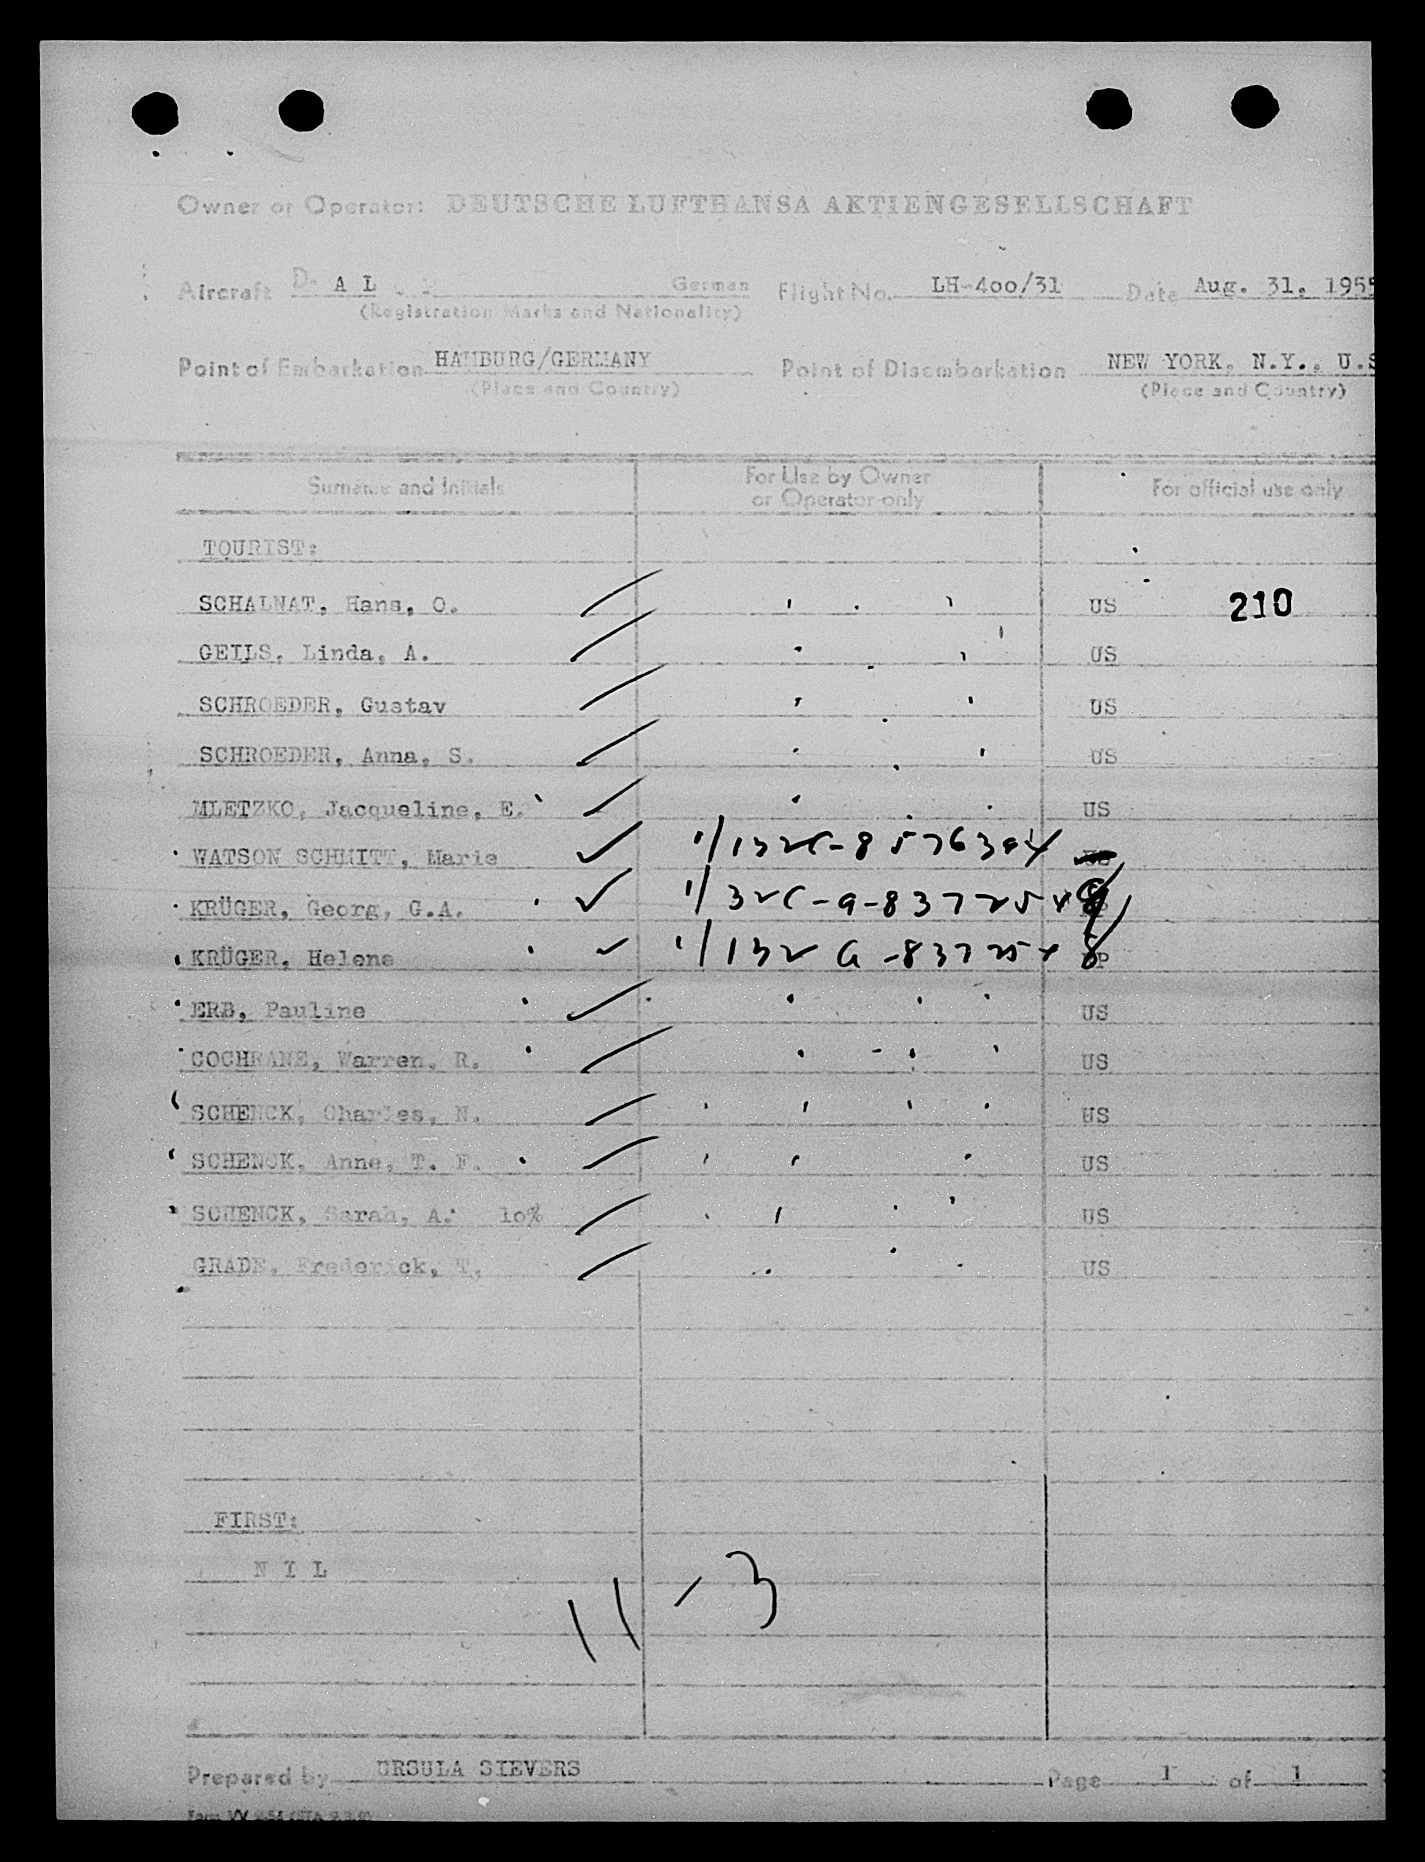 Owner or Operator: DEUTSCHE LUFTHANSA AKTIENGESELLSCHAFT
Aircraft D- A L German Flight No. LH-400/31 Date Aug. 31, 1955
(Registration Marks and Nationality)
Point of Embarkation HAMBURG/GERMANY Point of Disembarkation NEW YORK, N.Y., U.S
(Place and Country) (Place and Country)
Surname and Initials For Use by Owner or Operator only For official use only
TOURIST:
SCHALNAT, Hans, O. US 210
GEILS, Linda, A. US
SCHROEDER, Gustav US
SCHROEDER, Anna, S. US
MLETZKO, Jacqueline, E. US
WATSON SCHMITT, Marie
KRÜGER, Georg, G.A.
KRÜGER, Helene
ERB, Pauline US
COCHRANE, Warren, R. US
SCHENCK, Charles, N. US
SCHENCK, Anne, T. F. US
SCHENCK, Sarah, A. 10% US
GRADE, Frederick, T. US
FIRST:
N I L
11 - 3
Prepared by URSULA SIEVERS Page 1 of 1